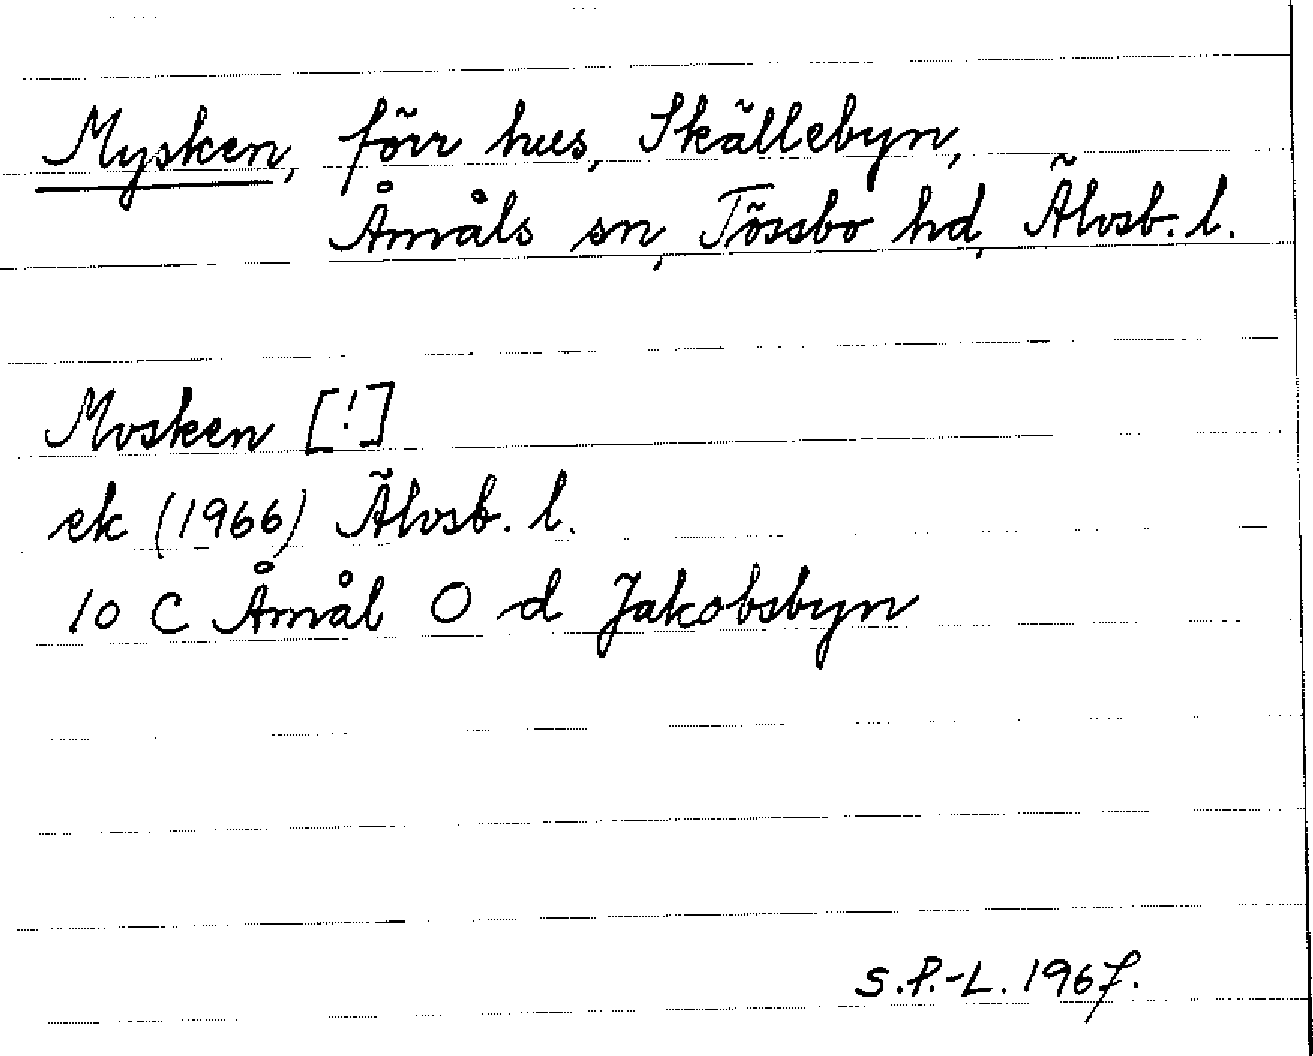 Mysken, förr hus, Skällebyn,
Åmåls sn, Tössbo hd, Älvsb. l.
Mosken [!]
ek (1966) Älvsb. l.
10 C Åmål O d Jakobsbyn
S.P.-L. 1967.